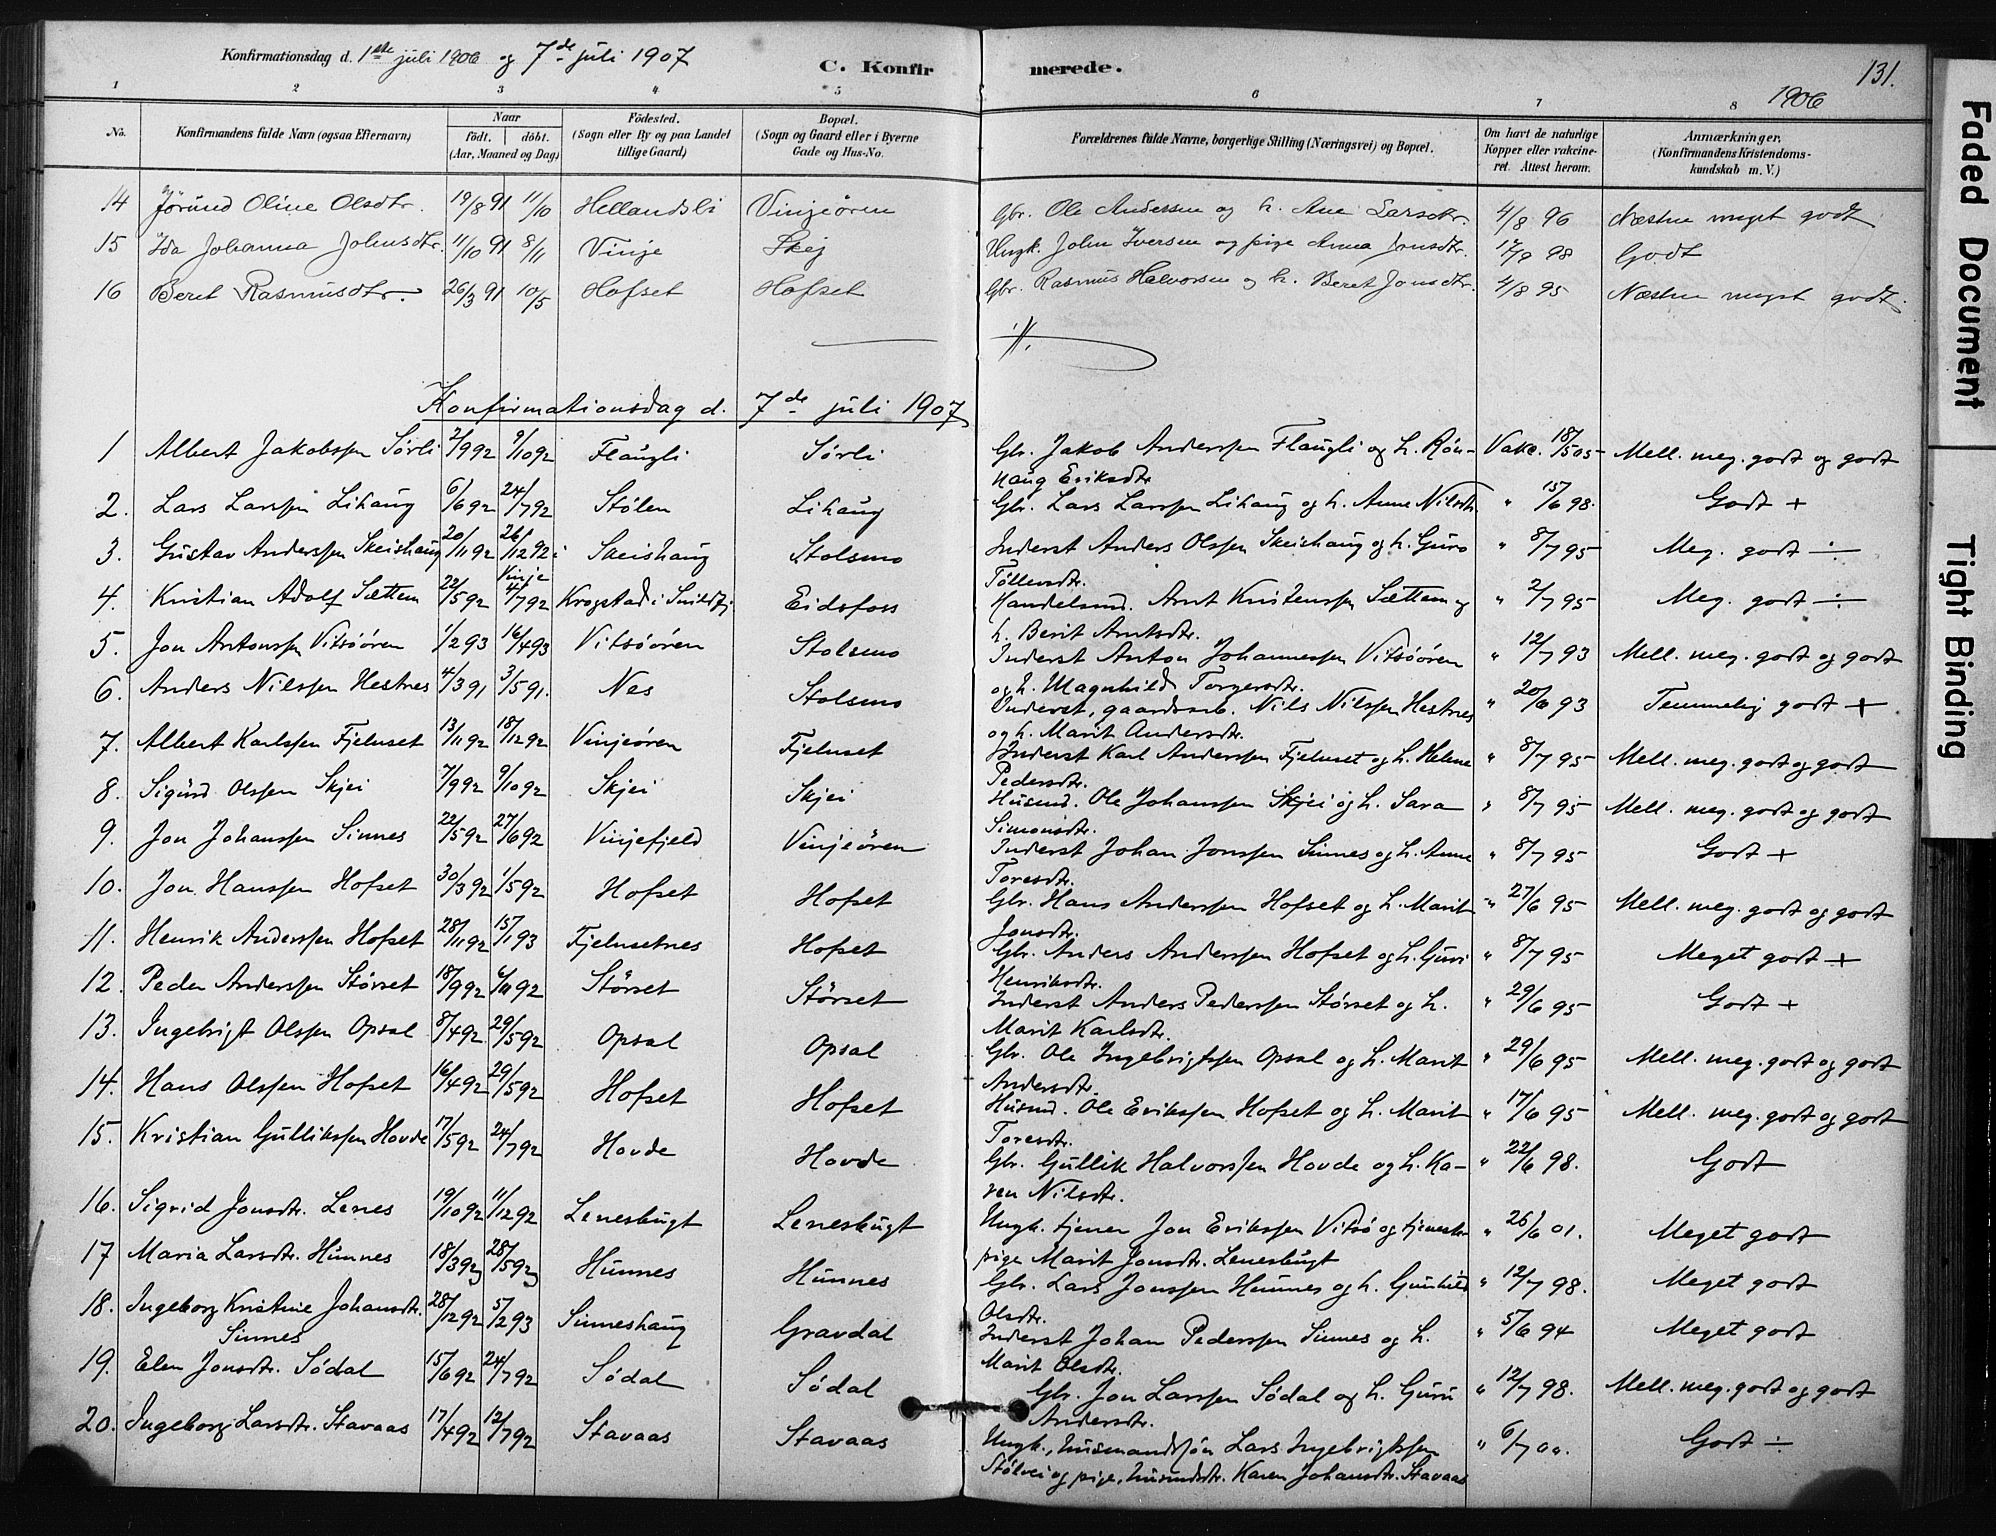 Konfirmationsdag d. 1ste juli 1906 og 7de juli 1907
C. Konfirmerede.
131.
1906
1 2 3 4 5 6 7 8
No. Konfirmandens fulde Navn (ogsaa Efternavn) Naar födt. döbt. (Aar, Maaned og Dag) Födested. (Sogn eller By og paa Landet tillige Gaard) Bopæl. (Sogn og Gaard eller i Byerne Gade og Hus-No. Forældrenes fulde Navne, borgerlige Stilling (Næringsvei) og Bopæl. Om havt de naturlige Kopper eller vakcineret. Attest herom. Anmærkninger. (Konfirmandens Kristendomskundskab m. V.)
14 Jörund Oline Olsdtr. 19/8 91 11/10 Hellandsli Vinjeören Gbr. Ole Andersen og h. Ane Larsdtr. 4/8 96 Næsten meget godt
15 Ida Johanna Johnsdtr. 11/10 91 8/11 Vinje Skej Ungk. John Iversen og pige Anna Jonsdtr. 17/9 98 Godt
16 Beret Rasmusdtr. 26/3 91 10/5 Hofset Hofset Gbr. Rasmus Halvorsen og h. Beret Jonsdtr. 4/8 95 Næsten meget godt.
Konfirmationsdag d. 7de juli 1907
1 Albert Jakobssen Sørli 2/9 92 9/10 92 Flaugli Sørli Gbr. Jakob Anderssen Flaugli og h. Røn- Vakc. 18/5 05 Mell. meg. godt og godt
naug Eriksdtr.
2. Lars Larssen Lihaug 6/6 92 24/7 92 Stølen Lihaug Gbr. Lars Larssen Lihaug og h. Anne Nilsdtr. " 15/6 98. Godt +
3. Gustav Anderssen Skeishaug 20/11 92 26/12 92 i Vinje Skeishaug Stolsmo Inderst Anders Olssen Skeishaug og h. Guro " 8/7 95 Meg. godt ÷
Tøllevsdtr.
4. Kristian Adolf Sættem 22/5 92 4/7 92 Krogstad i Snildfj Eidsfoss Handelsmd. Arnt Kristenssen Sættem og " 2/7 95 Meg. godt ÷
h. Berit Arntsdtr.
5. Jon Antonssen Vitsøøren 1/2 93 16/4 93 Vitsøøren Stolsmo Inderst Anton Johannessen Vitsøøren " 12/7 93 Mell. meg. godt og godt
og h. Magnhild Torgersdtr.
6. Anders Nilssen Hestnes 4/3 91 3/5 91. Nes Stolsmo Inderst, gaardarb. Nils Nilssen Hestnes " 20/6 93 Temmelig godt +
og h. Marit Andersdtr.
7. Albert Karlssen Fjelnset 13/11 92 18/12 92 Vinjeøren Fjelnset Inderst Karl Anderssen Fjelnset og h. Helene " 8/7 95 Mell. meg. godt og godt
Pedersdtr.
8. Sigurd Olssen Skjei 7/9 92 9/10 92 Skjei Skjei Husmd. Ole Johanssen Skjei og h. Sara " 8/7 95 Mell. meg. godt og godt
Simonsdtr.
9. Jon Johanssen Sinnes 22/5 92 27/6 92 Vinjefjeld Vinjeøren Inderst Johan Jonssen Sinnes og h. Anne " 8/7 95 Godt +
Toresdtr.
10. Jon Hanssen Hofset 30/3 92 1/5 92 Hofset Hofset Gbr. Hans Anderssen Hofset og h. Marit " 27/6 95 Mell. meg. godt og godt
Jonsdtr.
11. Henrik Anderssen Hofset 28/11 92 15/1 93 Fjelnsetnes Hofset Gbr. Anders Anderssen Hofset og h. Guri " 8/7 95 Meget godt +
Henriksdtr.
12. Peder Anderssen Størset 18/9 92 6/11 92 Størset Størset Inderst Anders Pederssen Størset og h. " 29/6 95 Godt +
Marit Karlsdtr.
13. Ingebrigt Olssen Opsal 8/4 92 29/5 92 Opsal Opsal Gbr. Ole Ingebrigtssen Opsal og h. Marit " 29/6 95 Mell. meg. godt og godt
Andersdtr.
14. Hans Olssen Hofset 16/4 92 29/5 92 Hofset Hofset Husmd. Ole Erikssen Hofset og h. Marit " 17/6 95 Mell. meg. godt og godt
Toresdtr.
15. Kristian Gullikssen Hovde 17/5 92 24/7 92 Hovde Hovde Gbr. Gullik Halvorssen Hovde og h. Ka- " 22/6 98. Godt
ren Nilsdtr.
16. Sigrid Jonsdtr. Lenes 19/10 92 11/12 92 Lenesbugt Lenesbugt Ungk. tjener Jon Erikssen Vitsø og tjeneste- " 26/6 01. Meget godt
pige Marit Jonsdtr. Lenesbugt
17 Maria Larsdtr. Hunnes 18/3 92 28/5 92 Hunnes Hunnes Gbr. Lars Jonssen Hunnes og h. Gunhild " 12/7 98. Meget godt
Olsdtr.
18. Ingeborg Kristine Johansdtr. 28/12 92 5/2 93 Sinneshaug Gravdal Inderst Johan Pederssen Sinnes og h. " 5/6 94 Meget godt
Sinnes Marit Olsdtr.
19. Elen Jonsdtr. Sødal 15/6 92 24/7 92 Sødal Sødal Gbr. Jon Larssen Sødal og h. Guru " 12/7 98. Mell. meg. godt og godt
Andersdtr.
20. Ingeborg Larsdtr. Stavaas 17/4 92 12/7 92 Stavaas Stavaas Ungk., husmandssøn Lars Ingebrigtssen " 6/7 00. Godt ÷
Stølvei og pige, husmdsdtr. Karen Johansdtr. Stavaas
Faded Document
Tight Binding